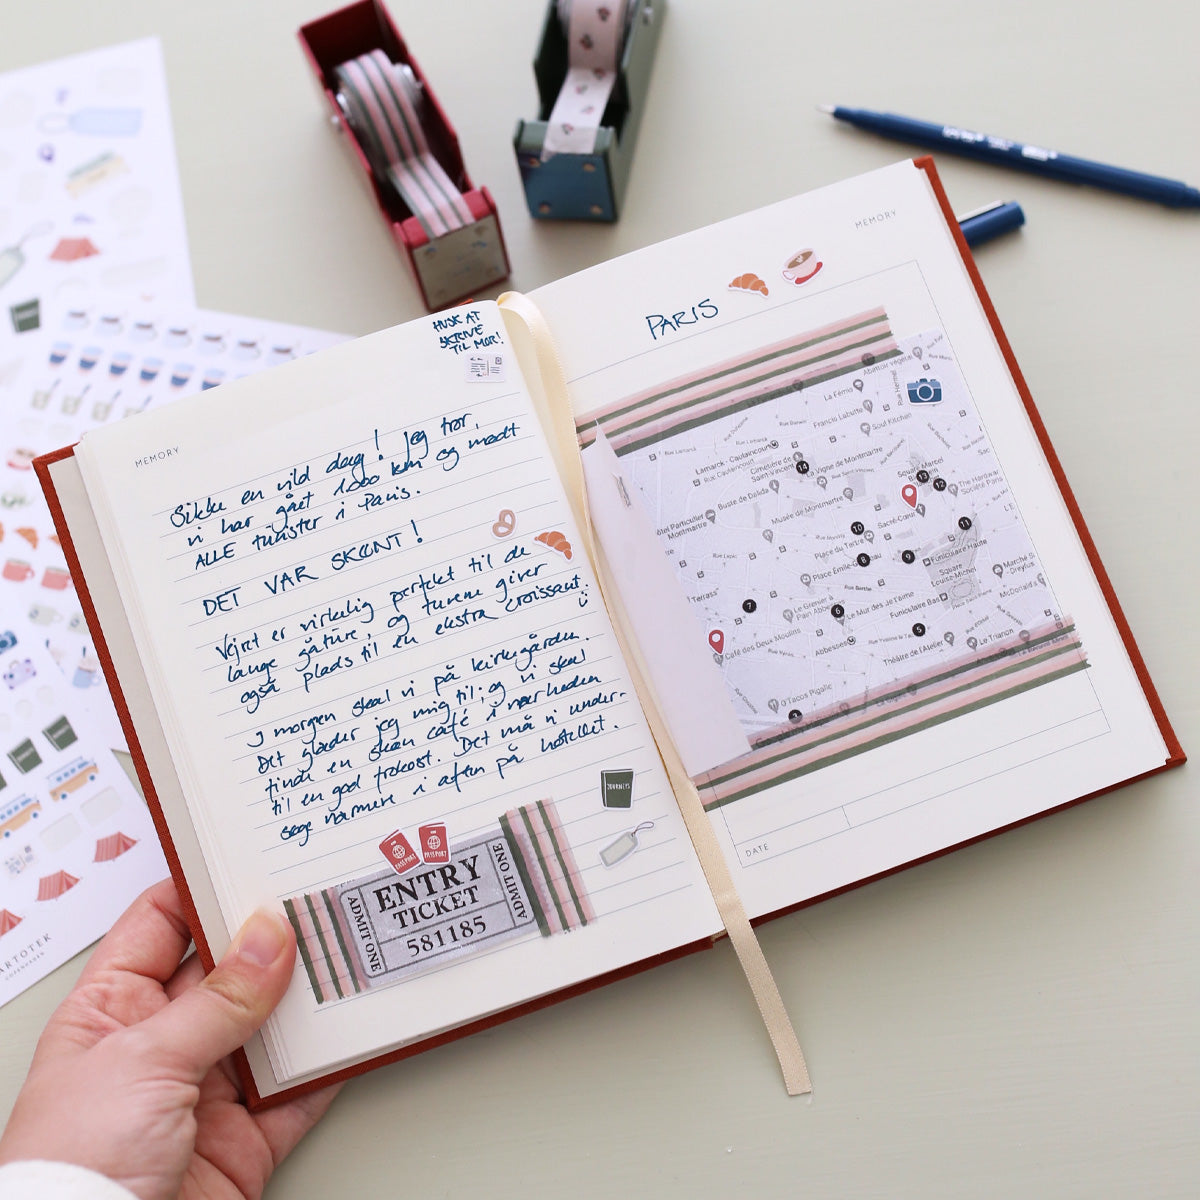 MEMORY
HUSK AT
SKRIVE
TIL MOR!
Sikke en vild dag! Jeg tror,
vi har gået 1.000 km og mødt
ALLE turister i Paris.
DET VAR SKØNT!
Vejret er virkelig perfekt til de
lange gåture, og turene giver
også plads til en ekstra croissant.
I morgen skal vi på kirkegården.
Det glæder jeg mig til; og vi skal
finde en skøn café i nærheden
til en god frokost. Det må vi under-
søge nærmere i aften på hotellet.
JOURNEYS
PASSPORT
PASSPORT
ADMIT ONE
ENTRY
TICKET
581185
ADMIT ONE
MEMORY
PARIS
Abattoir végétal
La Fémo
Rue Hermel
Francis Labutte
Soul Kitchen
Rue Lamarck
Lamarck - Caulaincourt
Rue Caulaincourt
Cimetière de
Saint-Vincent
14
La Vigne de Montmartre
Square Marcel
13
12
The Hardware
Société Paris
Buste de Dalida
Musée de Montmartre
Sacré-Cœur
11
Hôtel Particulier
Montmartre
10
Place du Tertre
8
9
Funiculaire Haute
Place Émile-Goudeau
Square
Louise-Michel
Marché S
Dreyfus
Rue Lepic
Rue Berthe
7
Le Grenier à
Pain Abbesses
6
Le Mur des Je t'aime
Funiculaire Bas
McDonald's
5
Café des Deux Moulins
Abbesses
Théâtre de l'Atelier
Le Trianon
O'Tacos Pigalle
La Cigale
DATE
ARTOTEK
COPENHAGEN